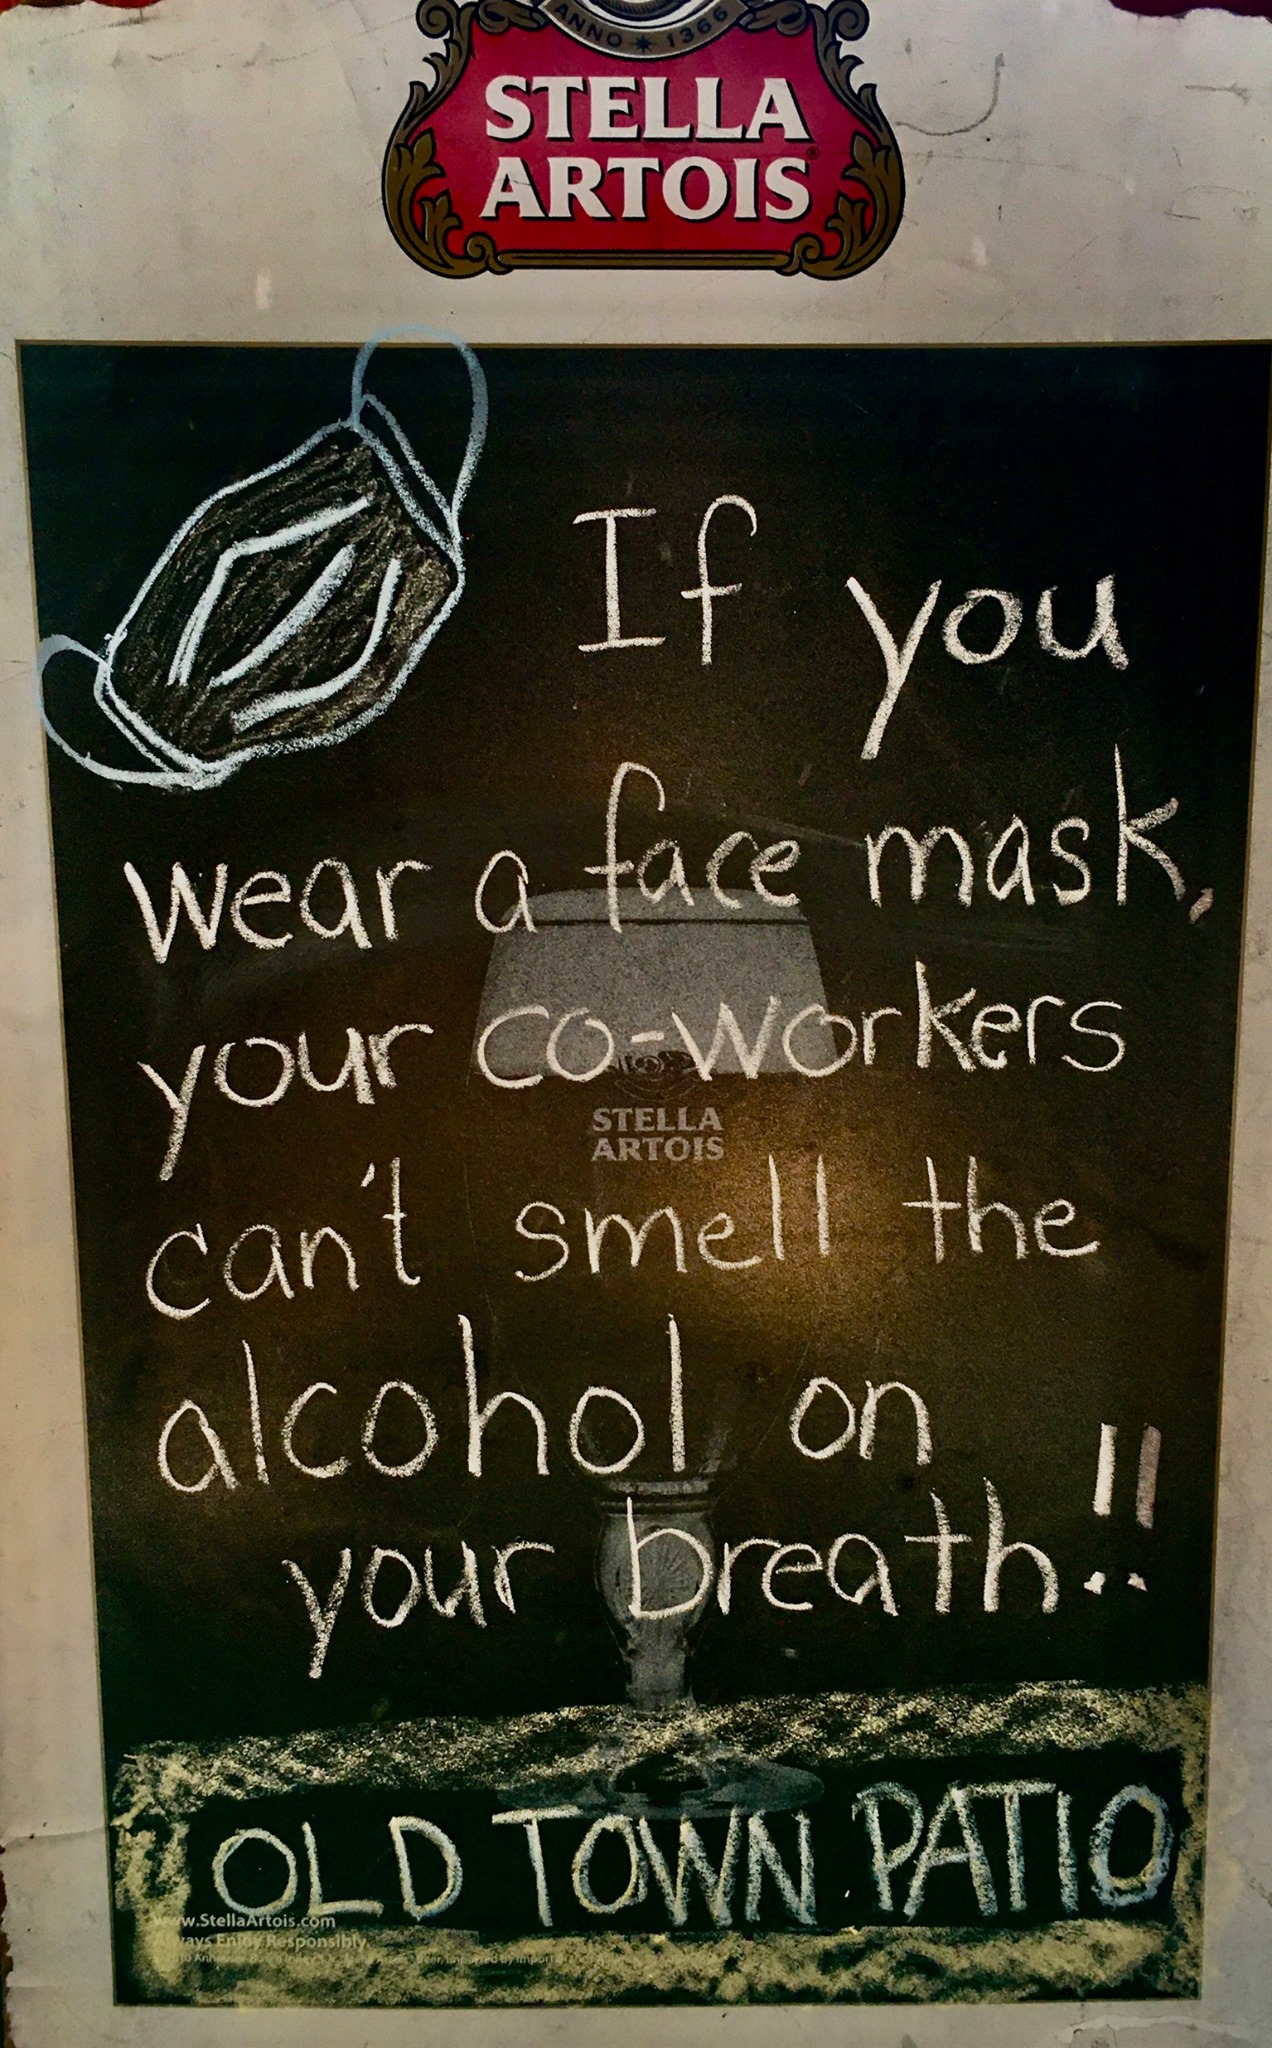 ANNO ★ 1366
STELLA
ARTOIS®
If you
wear a face mask,
your co-workers
STELLA
ARTOIS
can't smell the
alcohol on
your breath!!
OLD TOWN PATIO
www.StellaArtois.com
Always Enjoy Responsibly